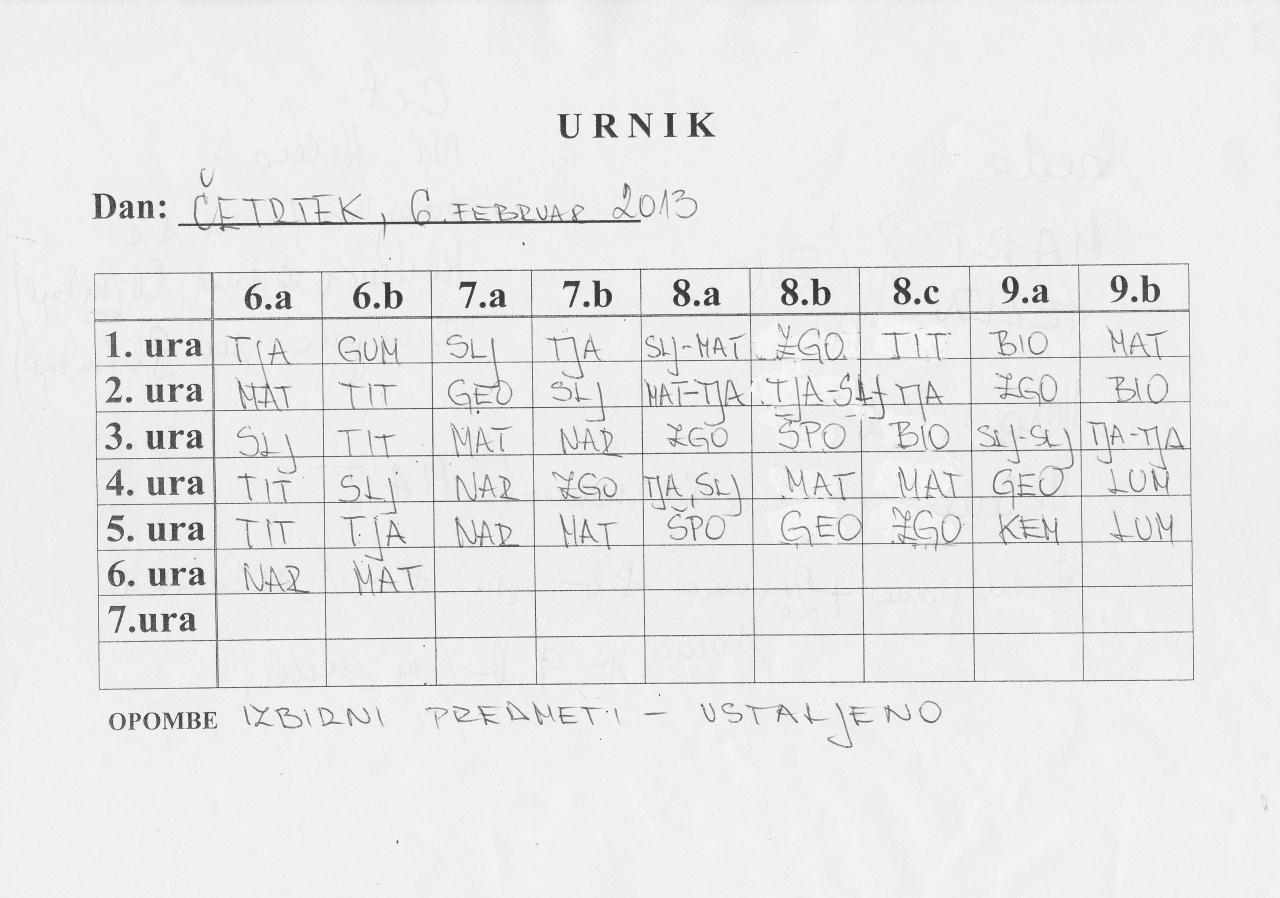 URNIK
Dan: ČETRTEK, 6. FEBRUAR 2013
6.a 6.b 7.a 7.b 8.a 8.b 8.c 9.a 9.b
1. ura TJA GUM SLJ TJA SLJ-MAT ZGO TIT BIO MAT
2. ura MAT TIT GEO SLJ MAT-TJA TJA-SLJ TJA ZGO BIO
3. ura SLJ TIT MAT NAR ZGO ŠPO BIO SLJ-SLJ TJA-TJA
4. ura TIT SLJ NAR ZGO TJA, SLJ MAT MAT GEO LUM
5. ura TIT TJA NAR MAT ŠPO GEO ZGO KEM LUM
6. ura NAR MAT
7.ura
OPOMBE IZBIRNI PREDMETI - USTALJENO